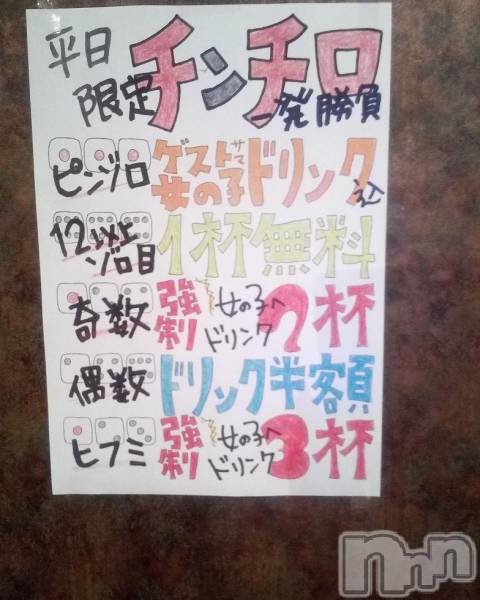 平日
限定
チンチロ
一発勝負
ピンゾロ
ゲストサマ
女の子ドリンク込
12以上
ゾロ目
1杯無料
奇数
強制
女の子へ
ドリンク
2杯
偶数
ドリンク半額
ヒフミ
強制
女の子へ
ドリンク
3杯